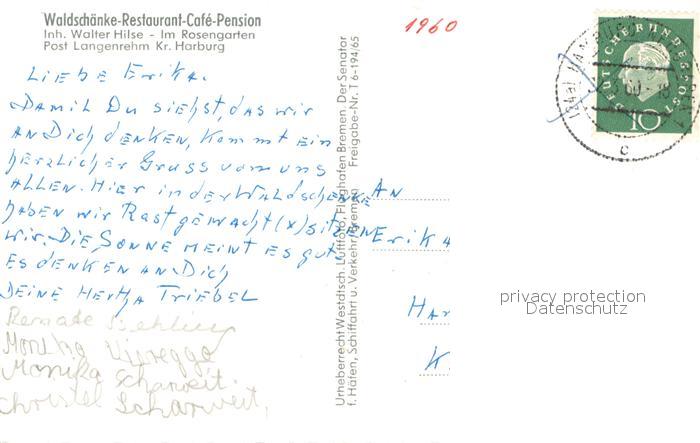 Waldschänke-Restaurant-Café-Pension
Inh. Walter Hilse - Im Rosengarten
Post Langenrehm Kr. Harburg
1960
Liebe Erika.
Damit Du siehst, das wir
an Dich denken, kommt ein
herzlicher Gruss vom uns
allen. Hier in der Waldschenke
haben wir Rast gemacht (x) sitzen
wir. Die Sonne meint es gut.
Es denken an Dich
Deine Hertha Triebel
Renate
Monika
Monika Scharweit.
Christel Scharweit,
Urheberrecht Westdtsch. Luftfoto, Flughafen Bremen. Der Senator
f. Häfen, Schiffahrt u. Verkehr, Bremen Freigabe-Nr. T 6-194/65
An
Erika
Har
K
DEUTSCHE BUNDESPOST
10
HAMBURG
60-18
c
privacy protection
Datenschutz